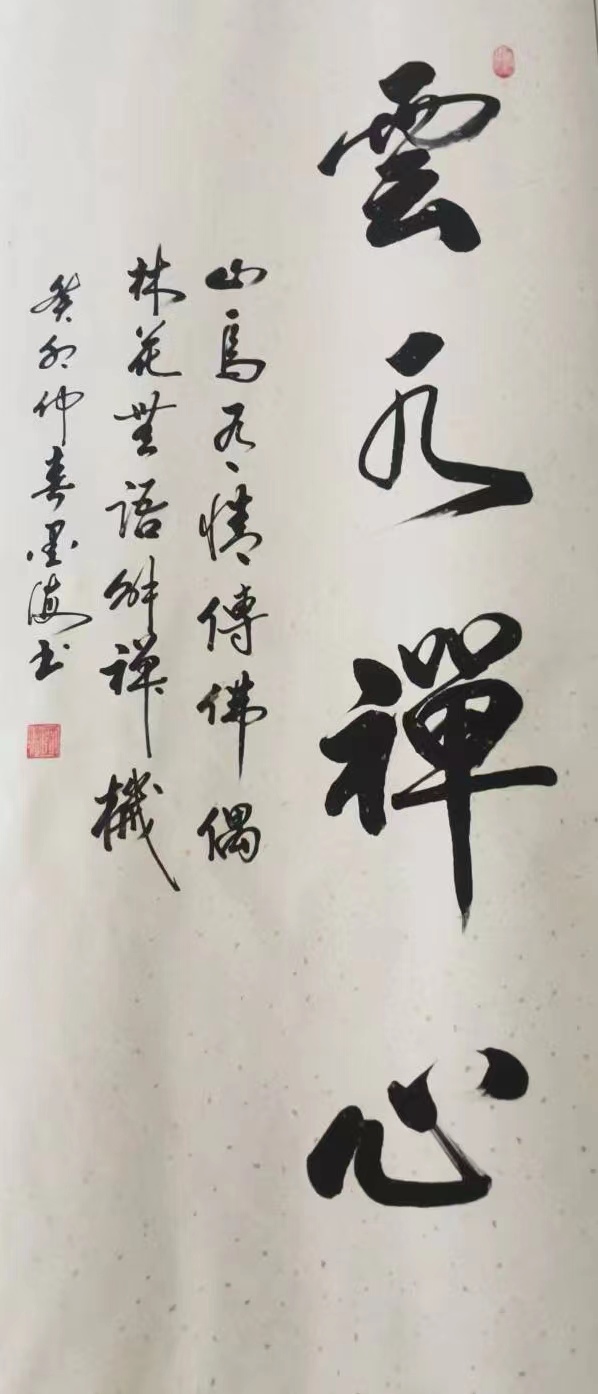 雲水禪心
山鳥有情傳佛偈
林花無語解禪機
癸卯仲春墨海书